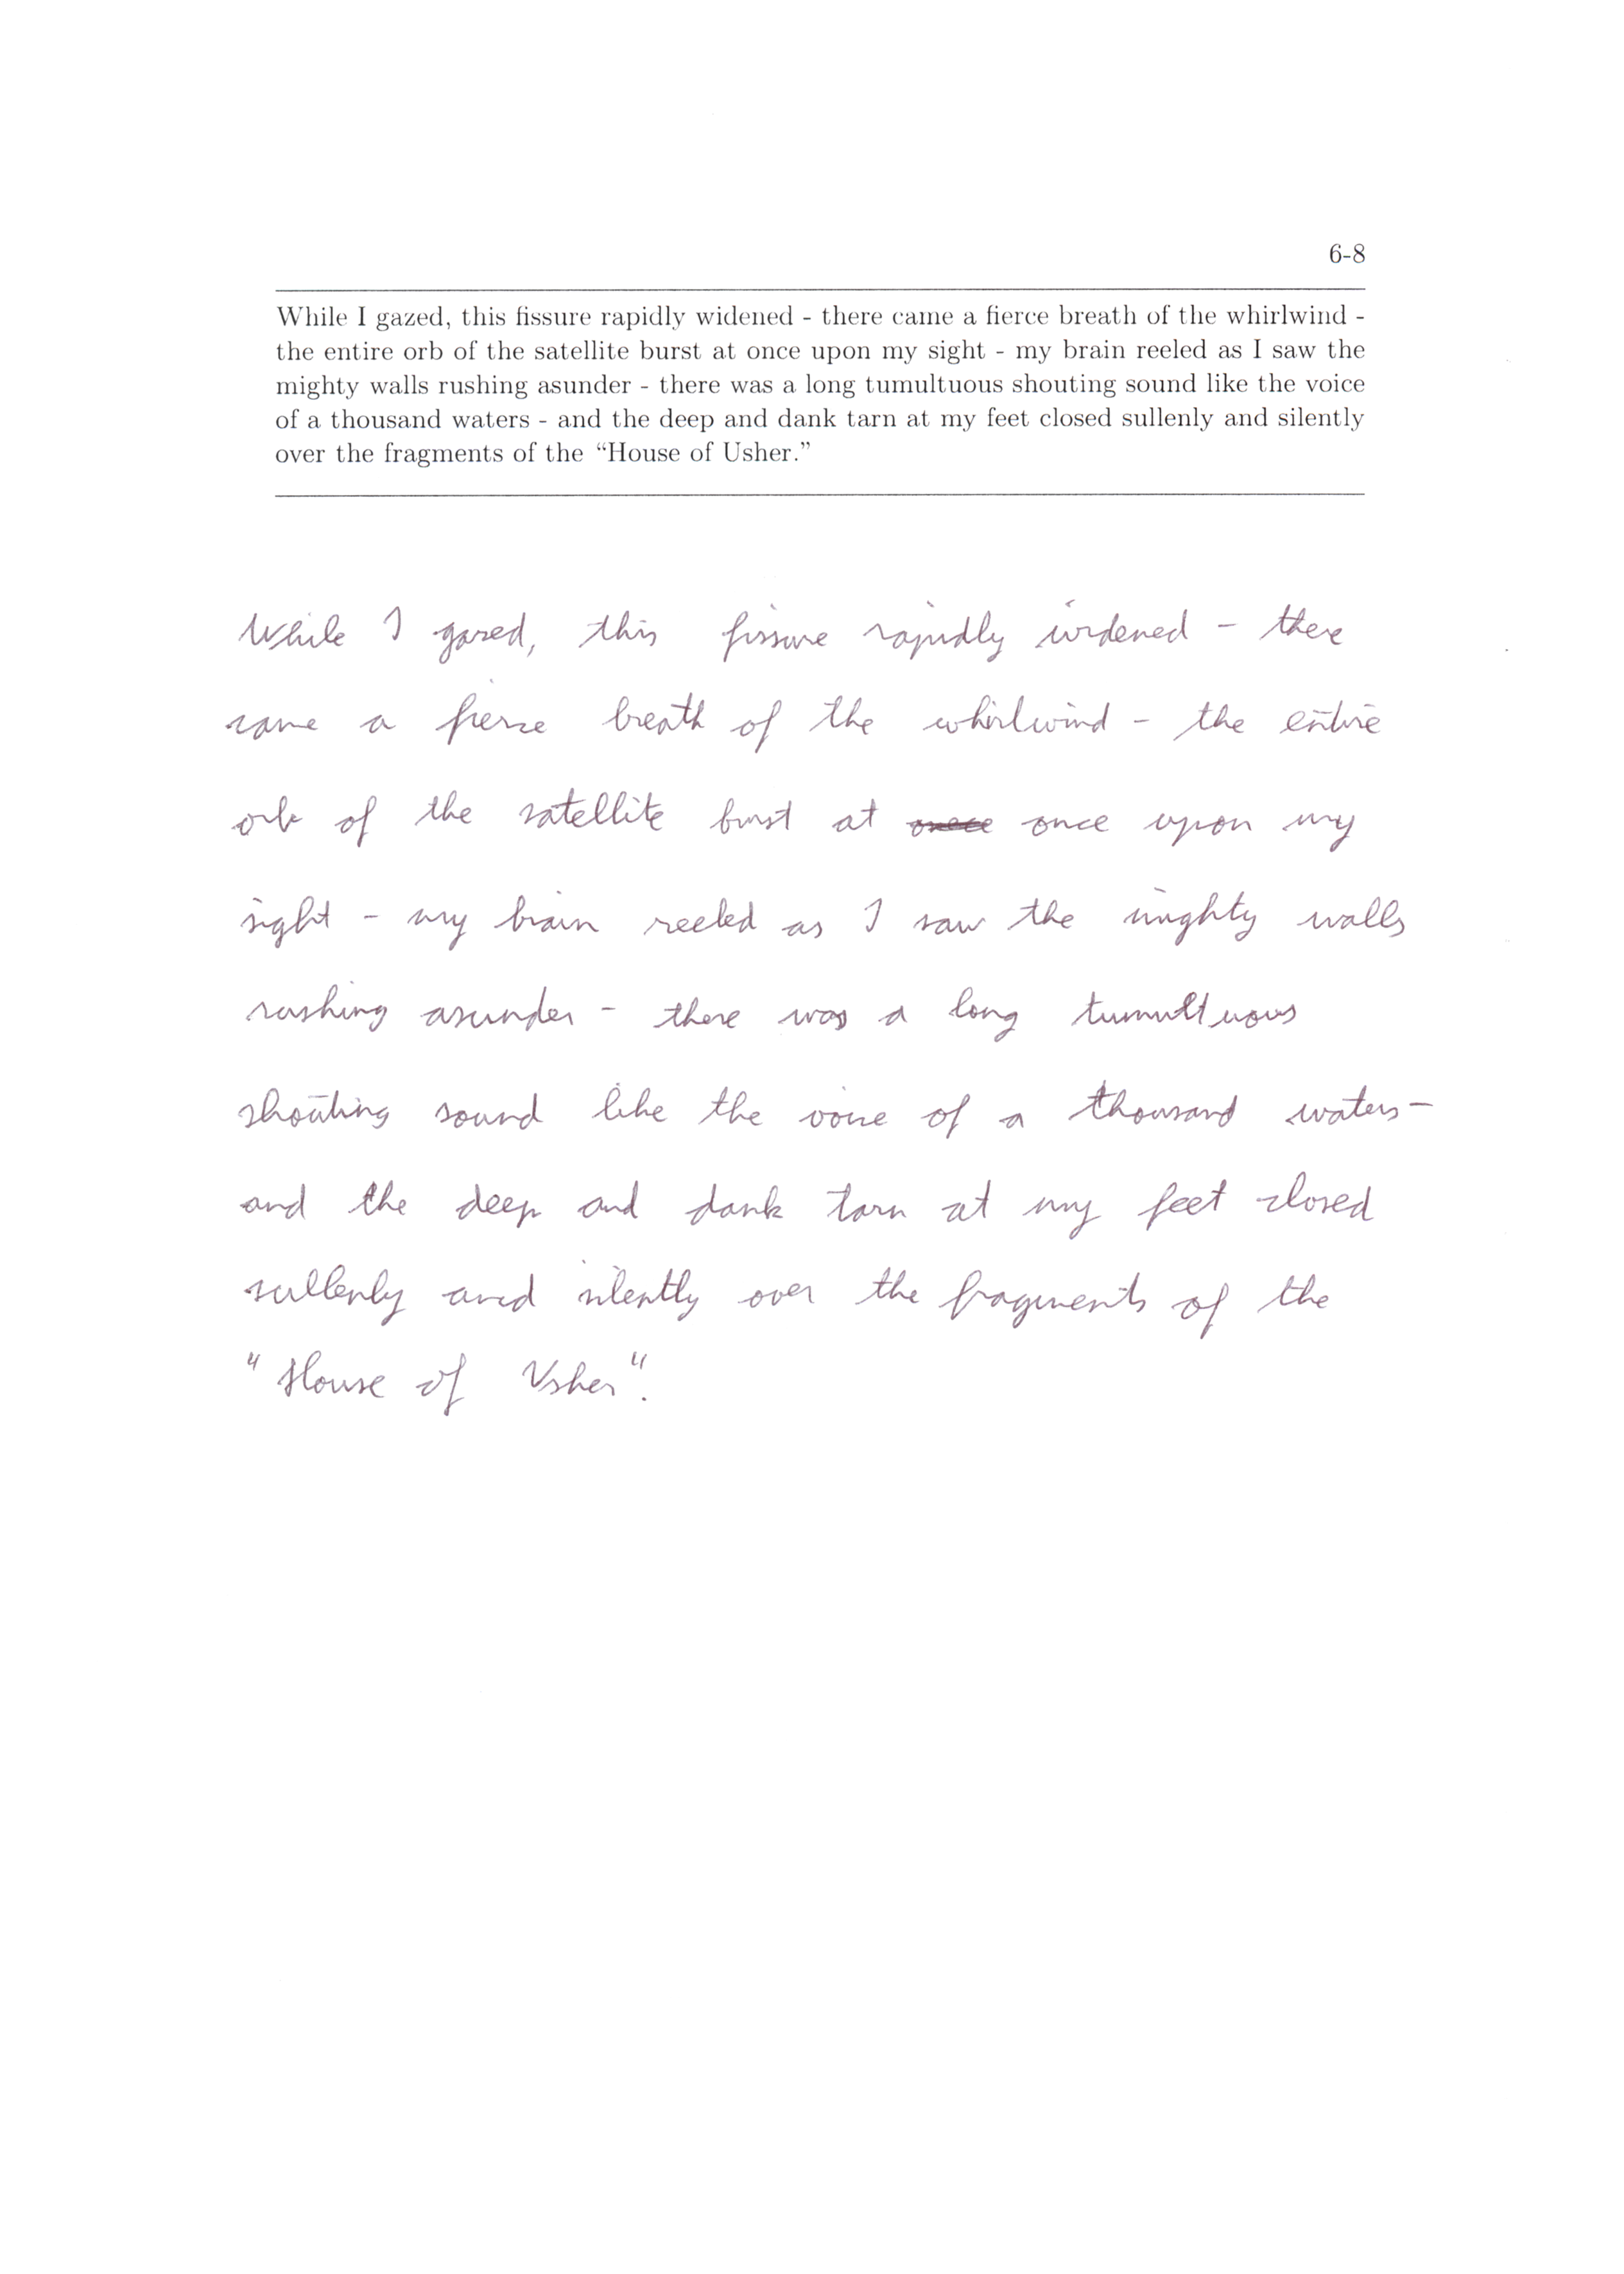 6-8
While I gazed, this fissure rapidly widened - there came a fierce breath of the whirlwind -
the entire orb of the satellite burst at once upon my sight - my brain reeled as I saw the
mighty walls rushing asunder - there was a long tumultuous shouting sound like the voice
of a thousand waters - and the deep and dank tarn at my feet closed sullenly and silently
over the fragments of the “House of Usher.”
While I gazed, this fissure rapidly widened - there
came a fierce breath of the whirlwind - the entire
orb of the satellite burst at once upon my
sight - my brain reeled as I saw the mighty walls
rushing asunder - there was a long tumultuous
shouting sound like the voice of a thousand waters -
and the deep and dank tarn at my feet closed
sullenly and silently over the fragments of the
"House of Usher".